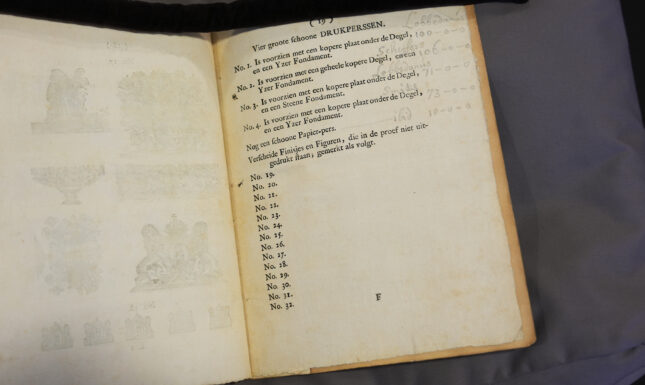 ( 19 )
Vier groote schoone DRUKPERSSEN.
No. 1. Is voorzien met een kopere plaat onder de Degel,
en een Yzer Fondament.
No. 2. Is voorzien met een geheele kopere Degel, en een
Yzer Fondament.
No. 3. Is voorzien met een kopere plaat onder de Degel,
en een Steene Fondament.
No. 4. Is voorzien met een kopere plaat onder de Degel,
en een Yzer Fondament.
Nog een schoone Papier-pers.
Verscheide Finisjes en Figuren, die in de proef niet uit-
gedrukt staan, gemerkt als volgt.
No. 19.
No. 20.
No. 21.
No. 22.
No. 23.
No. 24.
No. 25.
No. 26.
No. 27.
No. 28.
No. 29.
No. 30.
No. 31.
No. 32.
F
100-0-0
106-0-0
71-0-0
73-0-0
10-0-0